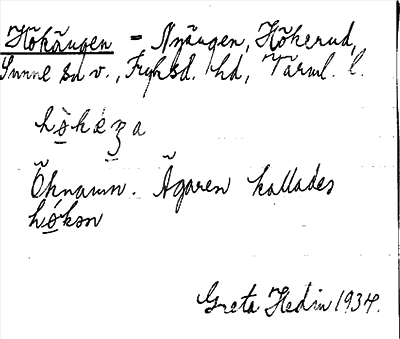 Hökängen = Nyängen, Hökerud,
Sunne sn v., Fryksd. hd, Värml. l.
Öknamn. Ägaren kallades
hökən
Greta Hedin 1934.